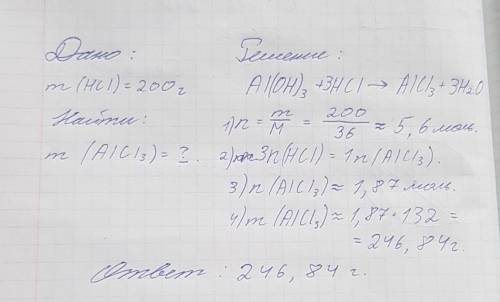 Дано:
m (HCl) = 200 г
Найти:
m (AlCl₃) = ?.
Решение:
Al(OH)₃ + 3HCl → AlCl₃ + 3H₂O
1) n = m/M = 200/36 ≈ 5,6 моль.
2) 3n(HCl) = 1n(AlCl₃).
3) n (AlCl₃) ≈ 1,87 моль.
4) m (AlCl₃) ≈ 1,87 · 132 =
= 246,84 г.
Ответ: 246,84 г.